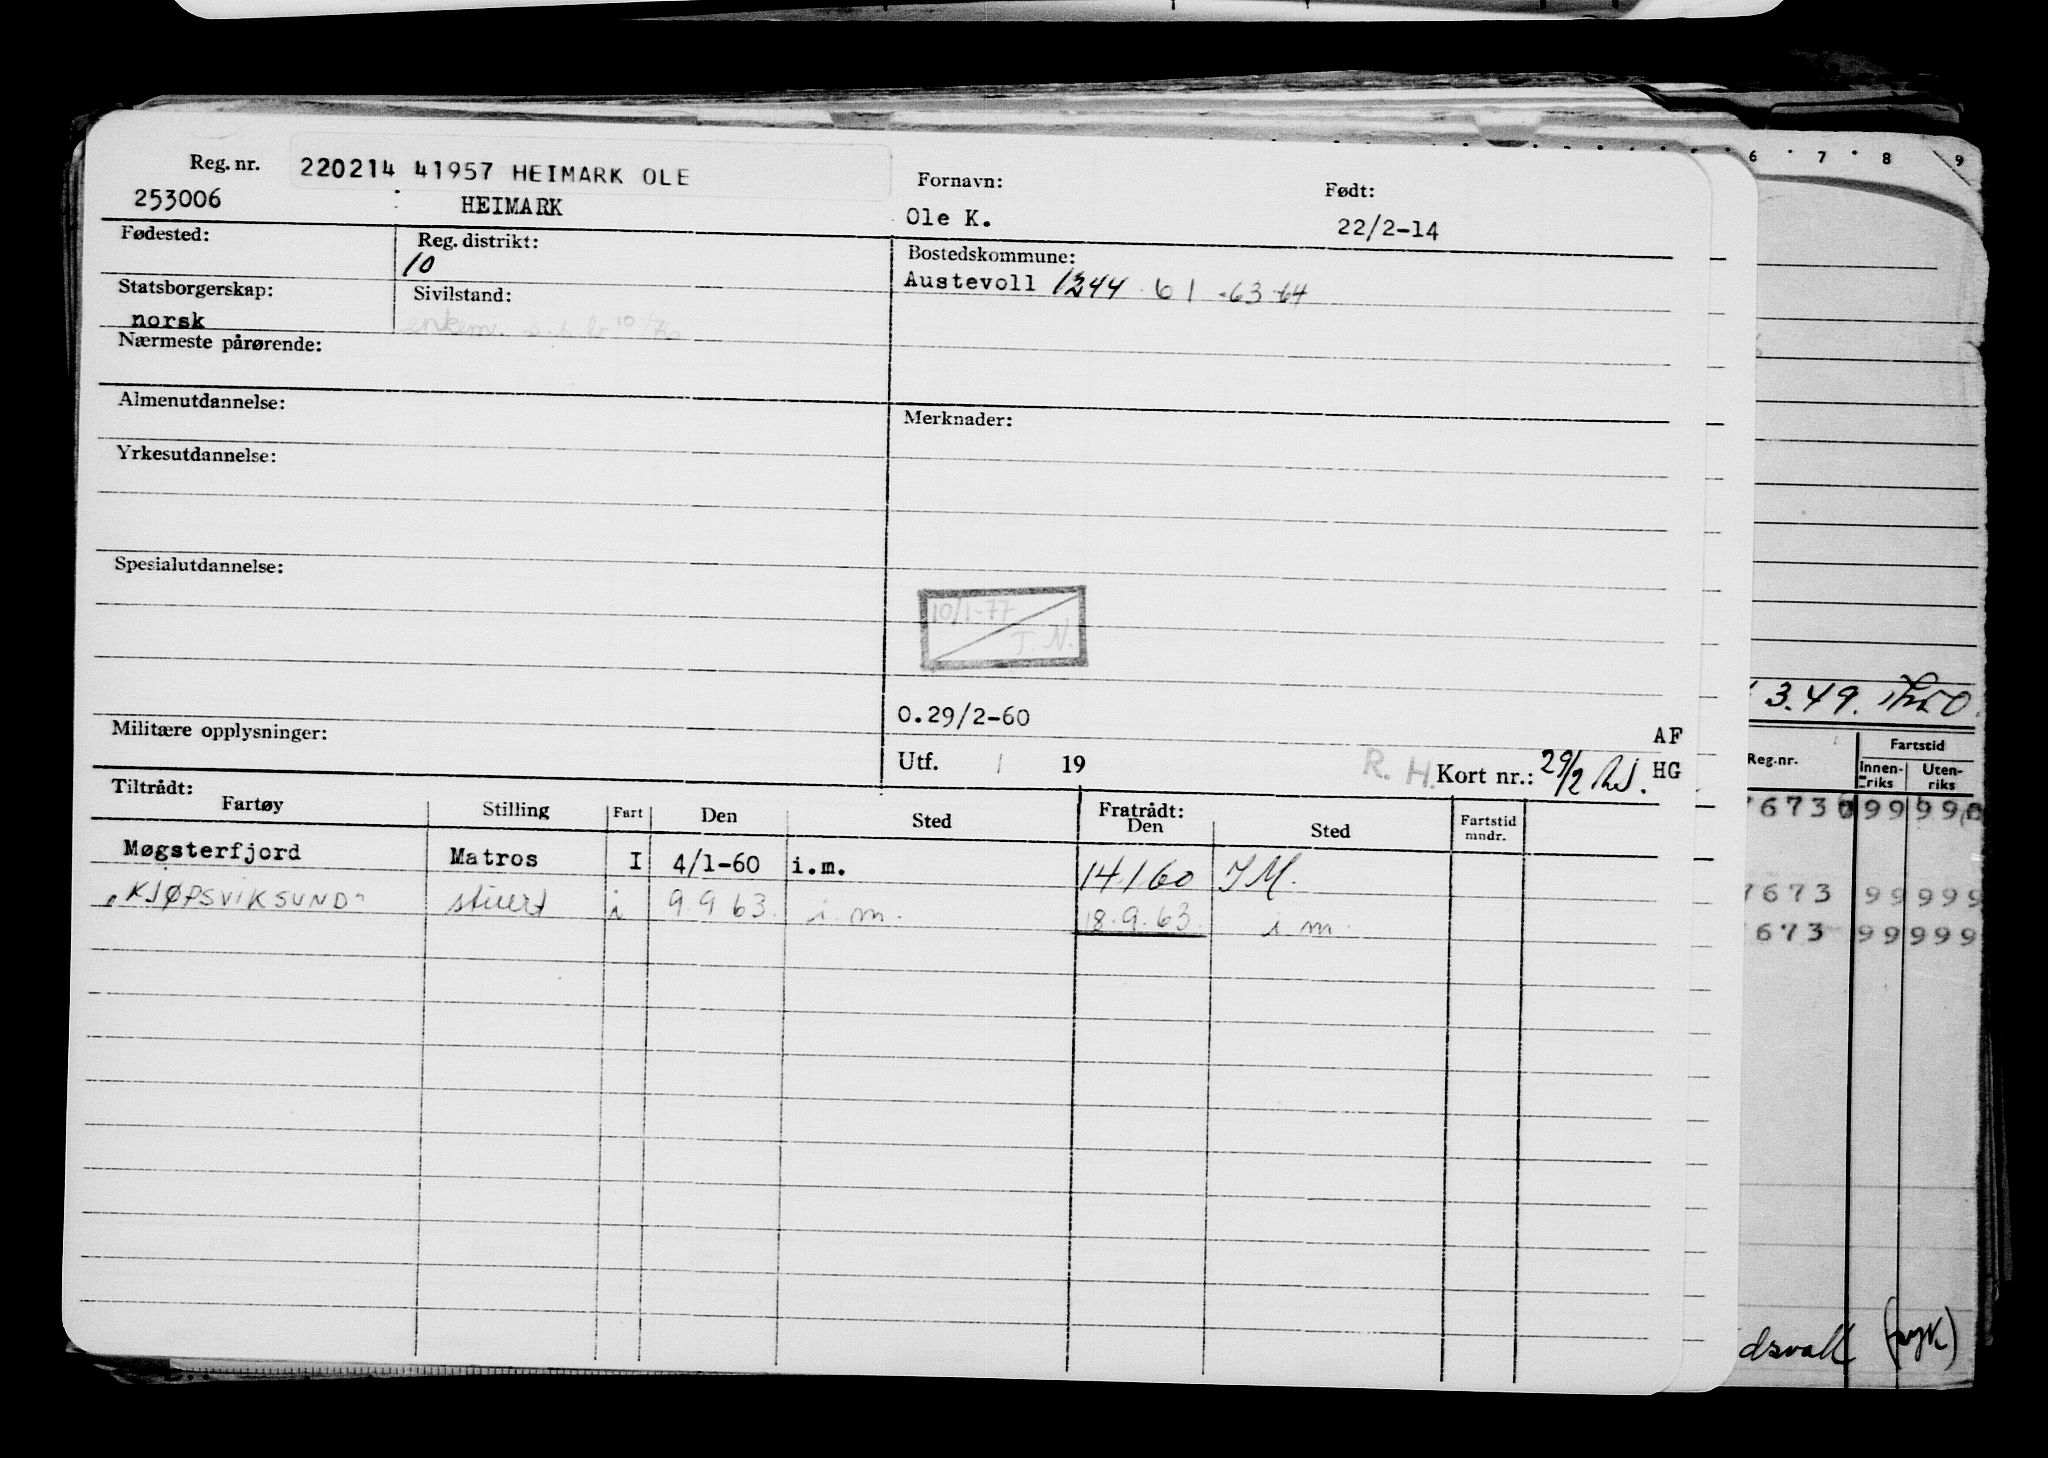 Reg. nr. 220214 41957 HEIMARK OLE
253006 HEIMARK
Fornavn: Ole K.
Født: 22/2-14
Fødested:
Reg. distrikt: 10
Bostedskommune:
Austevoll 1244 61 -63 -64
Statsborgerskap: norsk
Sivilstand:
Nærmeste pårørende:
Almenutdannelse:
Merknader:
Yrkesutdannelse:
Spesialutdannelse:
10/1-77
T. N.
0.29/2-60
Militære opplysninger:
AF
Utf. / 19 R. H. Kort nr.: 29/2 HG
Tiltrådt: Fratrådt:
Fartøy Stilling Fart Den Sted Den Sted Fartstid mndr.
Møgsterfjord Matros I 4/1-60 i.m. 14/1 60 I M.
"KJØPSVIKSUND" stuert i 9.9 63. i. m. 18.9.63. i m.
6 7 8 9
3.49.
Reg.nr. Fartstid
Innen-riks Uten-riks
99 99
7673 99 999
673 99 999
dsvall